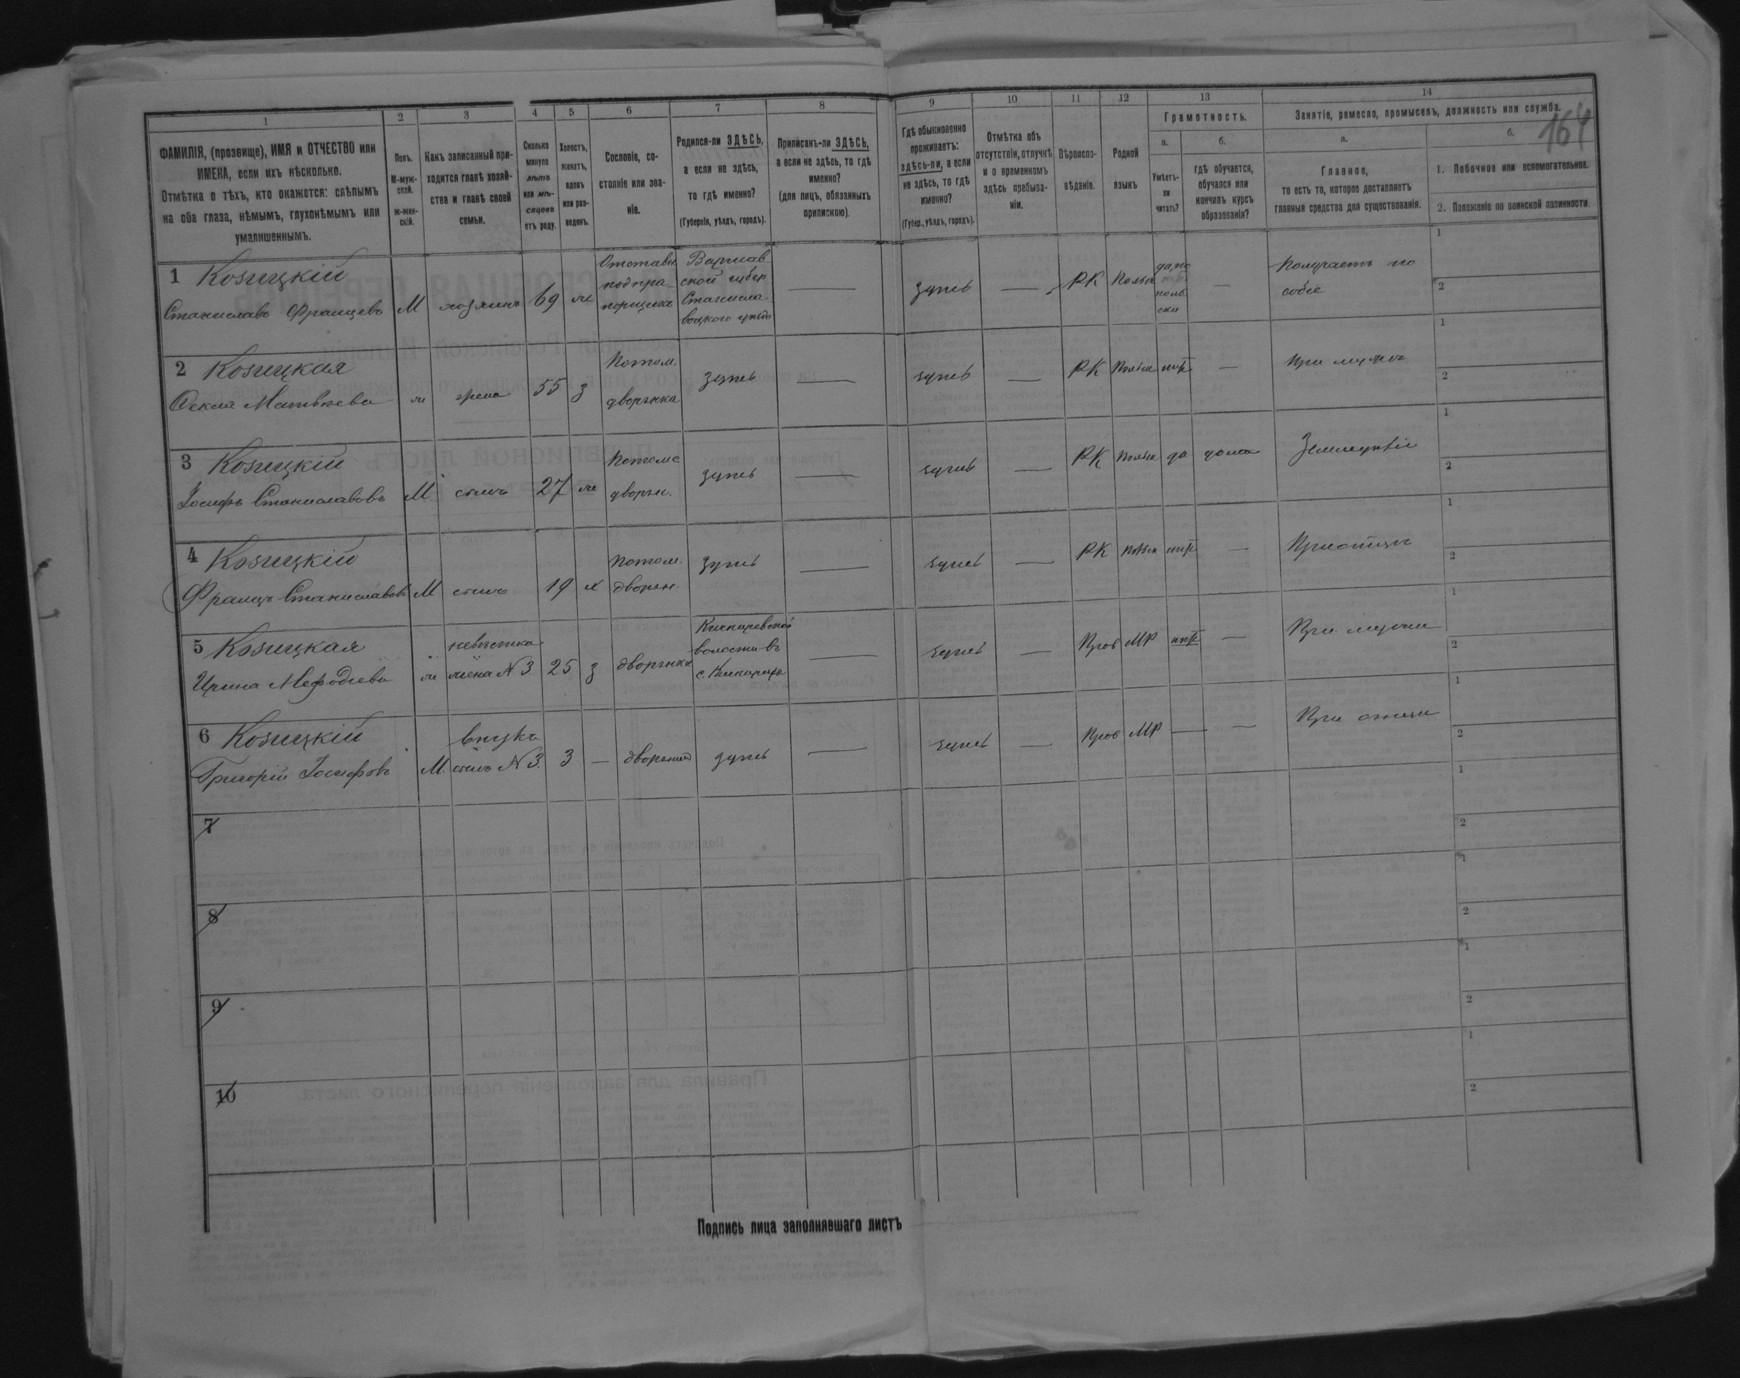 164
1 2 3 4 5 6 7 8 9 10 11 12 13 14
ФАМИЛІЯ, (прозвище), ИМЯ и ОТЧЕСТВО или ИМЕНА, если ихъ нѣсколько.
Отмѣтка о тѣхъ, кто окажется: слѣпымъ на оба глаза, нѣмымъ, глухонѣмымъ или умалишеннымъ.
Полъ.
М-муж-ской.
ж-жен-скій.
Какъ записанный при-ходится главѣ хозяй-ства и главѣ своей семьи.
Сколько минуло лѣтъ или мѣ-сяцевъ отъ роду.
Холостъ, женатъ, вдовъ или раз-веденъ.
Сословіе, со-стояніе или зва-ніе.
Родился-ли ЗДѢСЬ, а если не здѣсь, то гдѣ именно?
(Губернія, уѣздъ, городъ).
Приписанъ-ли ЗДѢСЬ, а если не здѣсь, то гдѣ именно?
(для лицъ, обязанныхъ припискою).
Гдѣ обыкновенно проживаетъ: здѣсь-ли, а если не здѣсь, то гдѣ именно?
(Губер., уѣздъ, городъ).
Отмѣтка объ отсутствіи, отлучкѣ и о временномъ здѣсь пребыва-ніи.
Вѣроиспо-вѣданіе.
Родной языкъ
Грамотность.
а.
Умѣетъ-ли читать?
б.
гдѣ обучается, обучался или кончилъ курсъ образованія?
Занятіе, ремесло, промыселъ, должность или служба.
а.
Главное,
то есть то, которое доставляетъ главныя средства для существованія.
б.
1. Побочное или вспомогательное.
2. Положеніе по воинской повинности.
1 Козицкій
Станиславъ Францевъ М хозяинъ 69 ж Отставн подпра порщикъ Варшав ской губер Станисла воцкого уѣзда — здѣсь — РК Польск да, по поль ски —
1
2
2 Козицкая
Матвѣева ж жена 55 з Потом. дворянка здѣсь — здѣсь — РК Польск нѣт — При мужѣ
1
2
3 Козицкій
Іосифъ Станиславовъ М сынъ 27 ж Потомс дворян. здѣсь — здѣсь — РК Польск да дома Земледѣліе
1
2
4 Козицкій
Францъ Станиславовъ М сынъ 19 х Потом. дворян. здѣсь — здѣсь — РК Польск нѣт — При отцѣ
1
2
5 Козицкая
Ирина Мефодіева ж невѣстка жена №3 25 з дворянка волости въ — здѣсь — Прав МР нѣт — При мужѣ
1
2
6 Козицкій
Григорій Іосифовъ М внукъ сынъ №3 3 — дворянин здѣсь — здѣсь — Прав МР — — При отцѣ
1
2
7
1
2
8
1
2
9
1
2
10
1
2
Подпись лица заполнявшаго листъ